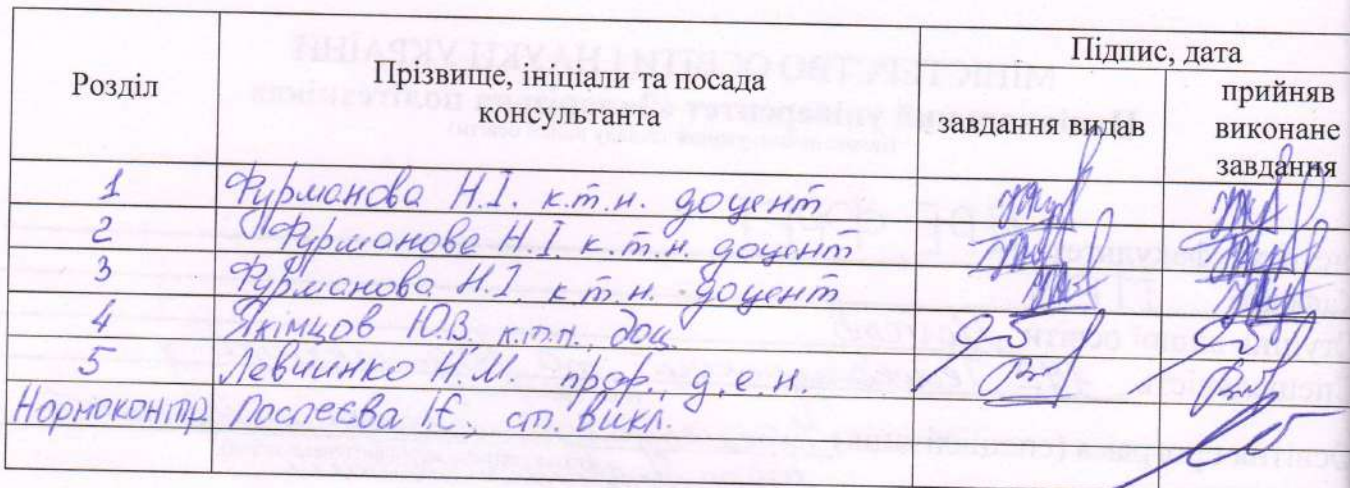 Розділ
Прізвище, ініціали та посада
консультанта
Підпис, дата
завдання видав
прийняв
виконане
завдання
1 Фурманова Н.І. к.т.н. доцент
2 Фурманова Н.І. к.т.н. доцент
3 Фурманова Н.І. к.т.н. доцент
4 Якімцов Ю.В. к.т.н., доц.
5 Левчинко Н.М. проф., д.е.н.
Нормоконтр. Поспеєва І.Є., ст. викл.